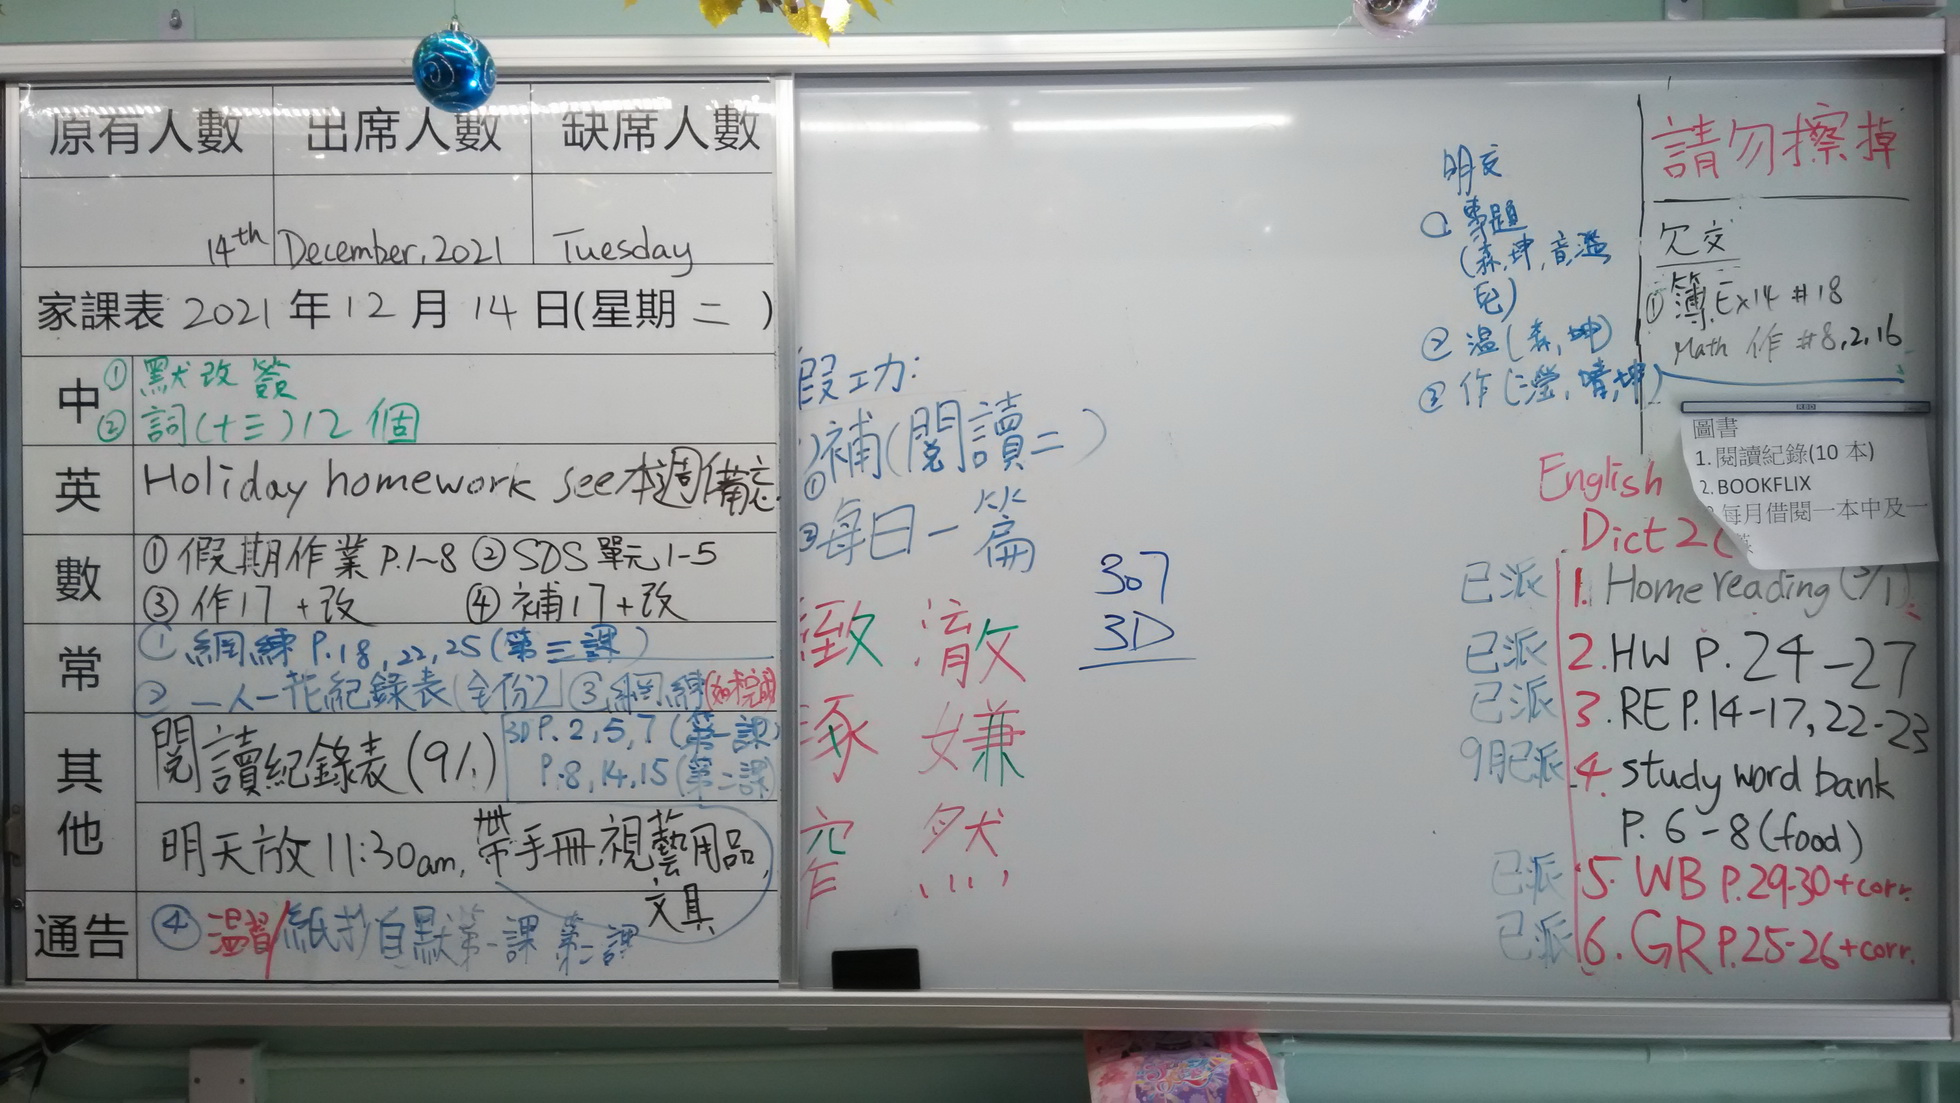 原有人數 出席人數 缺席人數
14th December, 2021 Tuesday
家課表 2021 年 12 月 14 日(星期 二 )
中 ① 默改簽
② 詞(十三)12個
英 Holiday homework see本週備忘
數 ① 假期作業 P.1~8 ② SDS 單元1-5
③ 作17 + 改 ④ 補17+改
常 ① 網練 P.18, 22, 25 (第三課)
② 一人一花紀錄表(全份2) ③網練
其他 閱讀紀錄表(9/1)
3D P. 2, 5, 7 (第一課)
P.8, 14, 15 (第二課)
明天放 11:30am, 帶手冊, 視藝用品,
文具
通告 ④ 溫習/紙抄自默第一課 第二課
假功:
① 補(閱讀二)
③ 每日一篇
緻 澈
琢 嫌
然
307
3D
明交
專題
② 溫(森, 坤)
作
請勿擦掉
欠交
① 簿 Ex14 #18
Math 作 #8, 2, 16
圖書
1. 閱讀紀錄(10 本)
2. BOOKFLIX
每月借閱一本中及一
English
Dict 2
已派 1. Home reading (3/1)
已派 2. HW P. 24-27
已派 3. RE P. 14-17, 22-23
9月已派 4. study word bank
P. 6-8 (food)
已派 5. WB P.29-30+corr.
已派 6. GR P.25-26+corr.